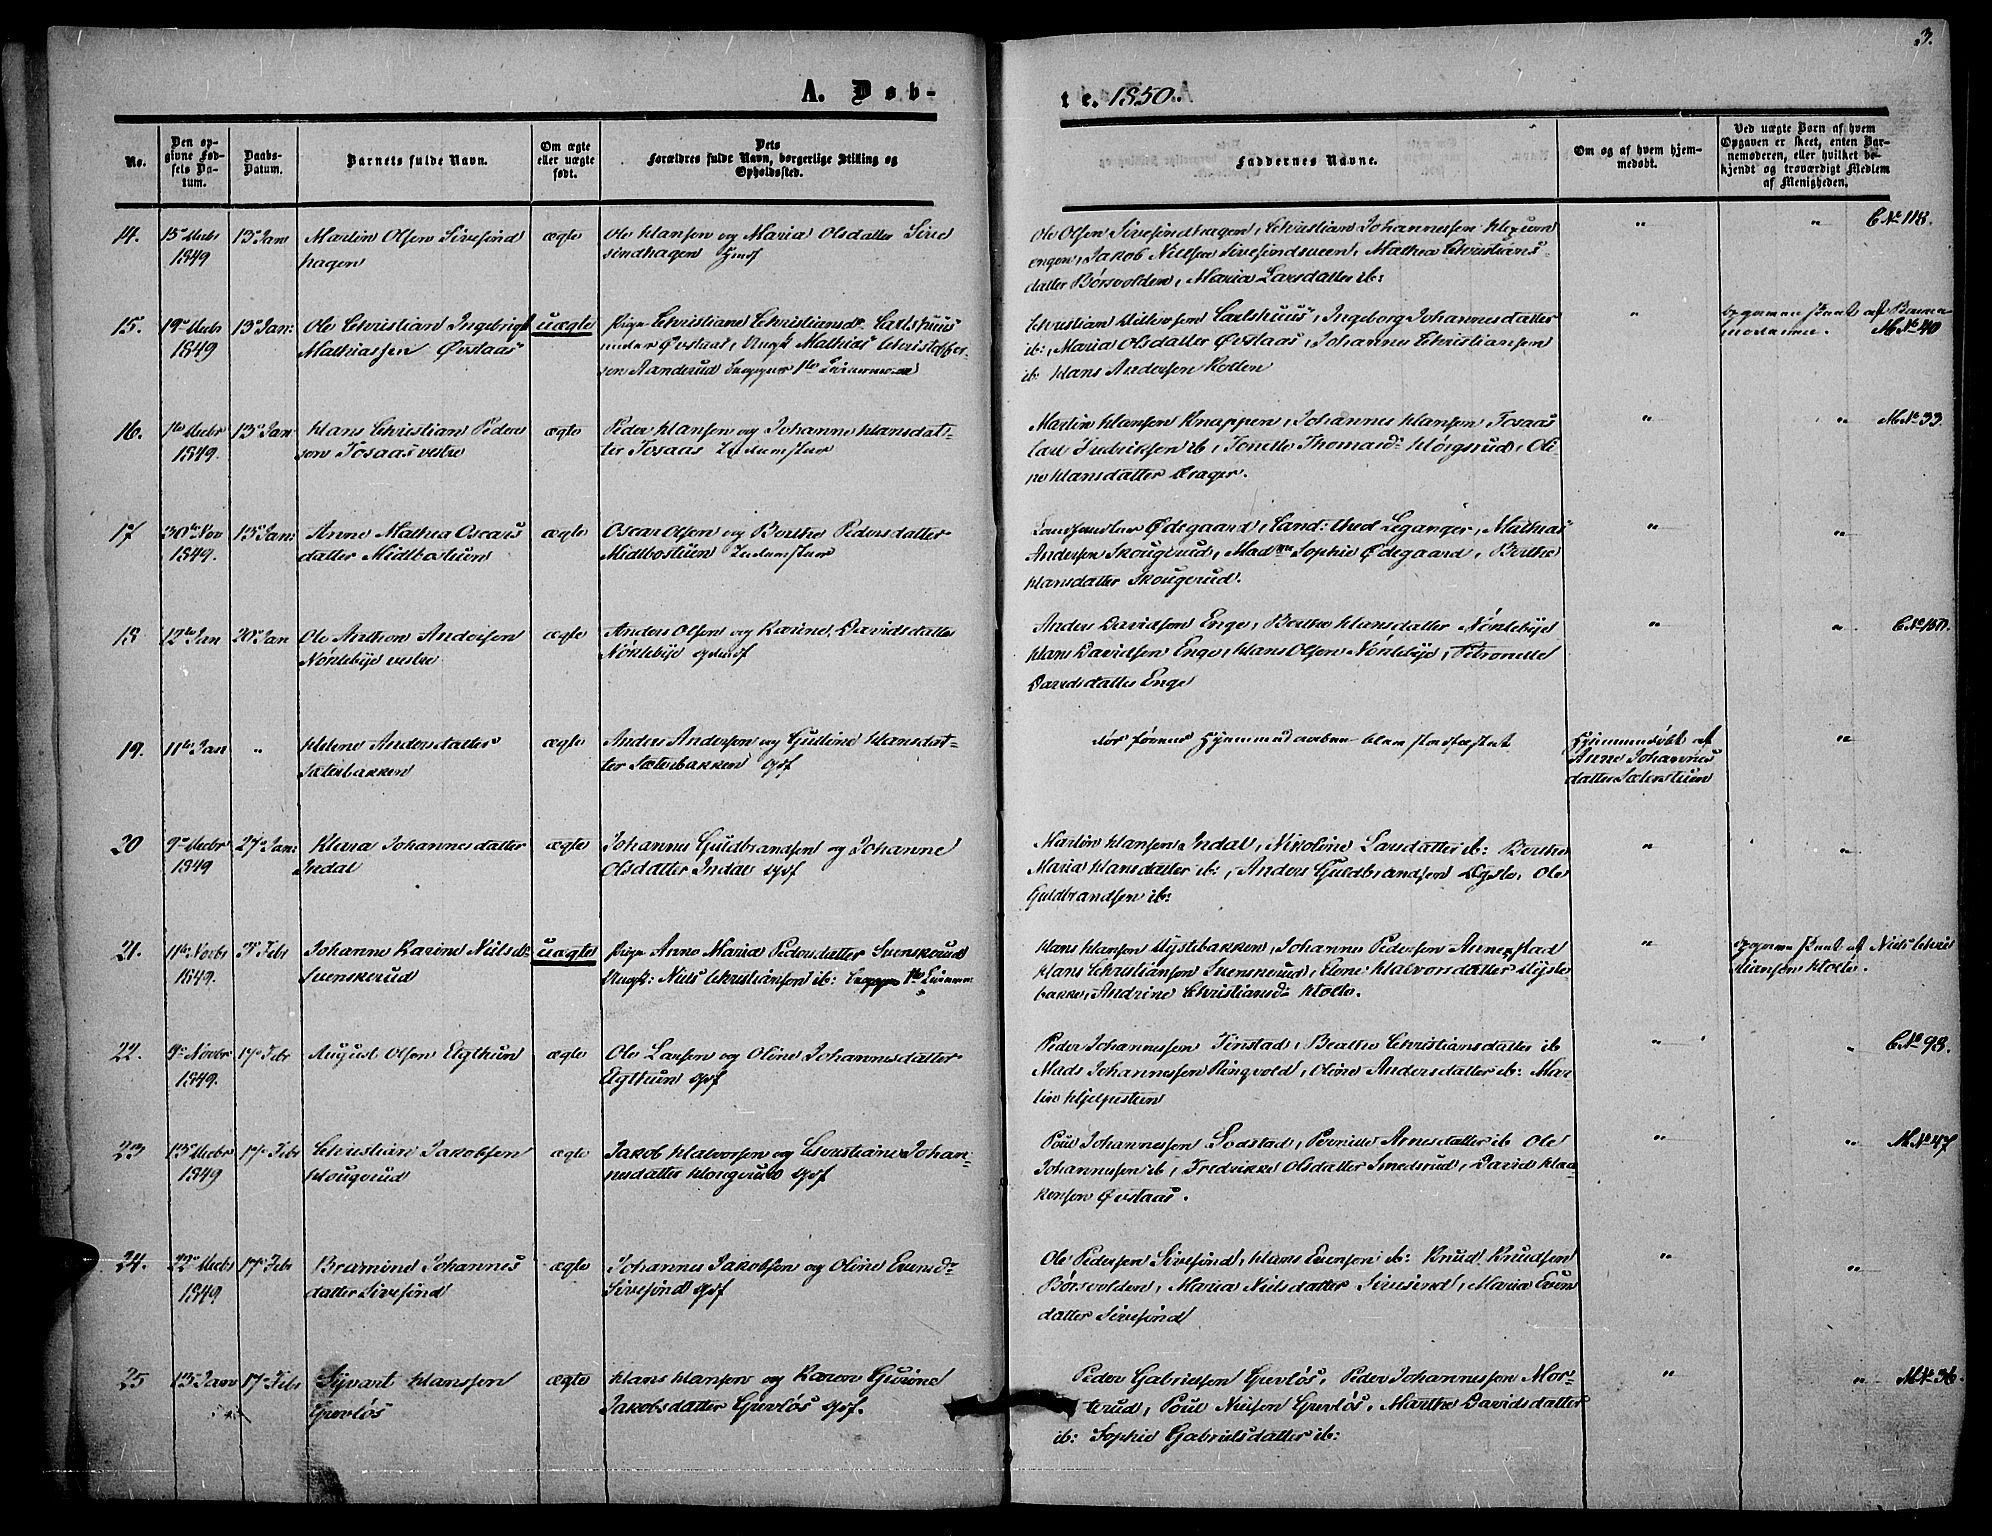 3.
A. Døb-
te. 1850.
No.
Den op-
givne Fød-
sels Da-
tum.
Daabs-
Datum.
Barnets fulde Navn.
Om ægte
eller uægte
født.
Dets
Forældres fulde Navn, borgerlige Stilling og
Opholdssted.
Faddernes Navne.
Om og af hvem hjem-
medøbt.
Ved uægte Børn af hvem
Opgaven er skeet, enten Bar-
nemoderen, eller hvilket be-
kjendt og troværdigt Medlem
af Menigheden.
14.
1849
13 Jan
Martin Olsen Sivesind
hagen
ægte
Ole Hansen og Maria Olsdatter Sive
sindhagen
Ole Olsen Sivesindhagen, Christian Johannessen
engen, Jakob Nielsen Sivesindsveen, Mathea Christians
datter Børsvolden, Maria Larsdatter ib:
"
"
C No 118.
15.
1849
13 Jan:
Ole Christian Ingebrigt
Mathiassen Øvstaas
uægte
Pige Christiane Christiansdr. Carlshuus
under Øvstaas, Mathias Christoffer-
sen Aanderud
Christian Carlshuus, Ingeborg Johannesdatter
ib:, Maria Olsdatter Øvstaas, Johannes Christiansen
ib: Hans Andersen Kollen
"
af Barne
moderen. M No 40
16.
1849.
13 Jan
Hans Christian Peder
sen Fosaas vestre
ægte
Peder Hansen og Johanne Hansdat-
ter Fosaas
Martin Hansen Knappen, Johannes Hansen Fosaas
Carl Fredriksen ib, Tonette Thomasdr. Oli-
ne Hansdatter Krager.
"
"
M No 33
17
30te Nov
1849.
13 Jan:
Anne Mathea Oscars
datter Midtbøstuen
ægte
Oscar Olsen og Berthe Pedersdatter
Midtbøstuen
Ødegaard, Cand: theol Leganger, Mathias
Andersen Skougerud, Madme Sophie Ødegaard, Berthe
Hansdatter Skougerud.
"
"
18
12te Jan
20 Jan
Ole Anthon Andersen
Nøkleby vestre
ægte
Anders Olsen og Karine Davidsdatter
Nøkleby
Anders Davidsen Enge, Berthe Hansdatter Nøkleby
Hans Davidsen Enge, Hans Olsen Nøkleby, Petronelle
Davidsdatter Enge
"
"
C No 150.
19.
11te Jan
"
Helene Andersdatter
Sæterbakken
ægte
Anders Andersen og Gulline Hansdat-
ter Sæterbakken
død førend Hjemmedaaben blev stadfæstet
Hjemmedøbt af
Anne Johannes
datter Sæterstuen
"
20
1849
27 Jan:
Klara Johannesdatter
Indal
ægte
Johannes Guldbrandsen og Johanne
Olsdatter Indal
Martin Hansen Indal, Nikoline Larsdatter ib: Berthe
Maria Hansdatter ib:, Anders Guldbrandsen Ole
Guldbrandsen ib:
"
"
21.
11te Novbr
1849.
3 Febr
Johanne Karine Nielsdr.
Svenskerud
uægte
Pige Anne Maria Pedersdatter Svenskerud
Ungk: Niels Christiansen ib:
Hans Hansen Johannes Pedersen
Hans Christiansen Svenskerud, Halvorsdatter
bakken, Andrine Christiansdr. Holte.
"
af Niels Chris
tiansen Holte.
22.
9 Novbr
1849.
17 Febr
August Olsen
ægte
Ole Larsen og Oline Johannesdatter
Peder Johannessen Finstad, Beathe Christiansdatter ib
Mads Johannessen Ringvold, Oline Andersdatter ib: Mar-
"
"
C No 93.
23
1849
17 Febr
Christian Jakobsen
Hougerud
ægte
Jakob Halvorsen og Christiane Johan-
nesdatter Hougerud
Poul Johannessen Sodstad, Pernille Arnesdatter ib Ole
Johannessen ib, Fredrikke Olsdatter Smedsrud, David Haa-
kensen Øvstaas.
"
"
M No 47
24.
1849
17 Febr
Bredmine Johannes
datter Sivesind
ægte
Johannes Jakobsen og Oline Evensdr.
Sivesind
Ole Pedersen Sivesind, Hans Evensen ib: Knud Knudsen
Børsvolden, Maria Nielsdatter Sivesind, Maria Evens
datter Sivesind
"
"
25
13 Jan
17 Febr
Syvart Hansen
Gjevløs
ægte
Hans Hansen og Karen Gurine
Jakobsdatter Gjevløs
Peder Gabrielsen Gjevløs, Peder Johannessen Mor-
terud, Poul Nielsen Gjevløs, Marthe Davidsdatter
ib: Sophie Gabrielsdatter ib:
"
"
M No 36.